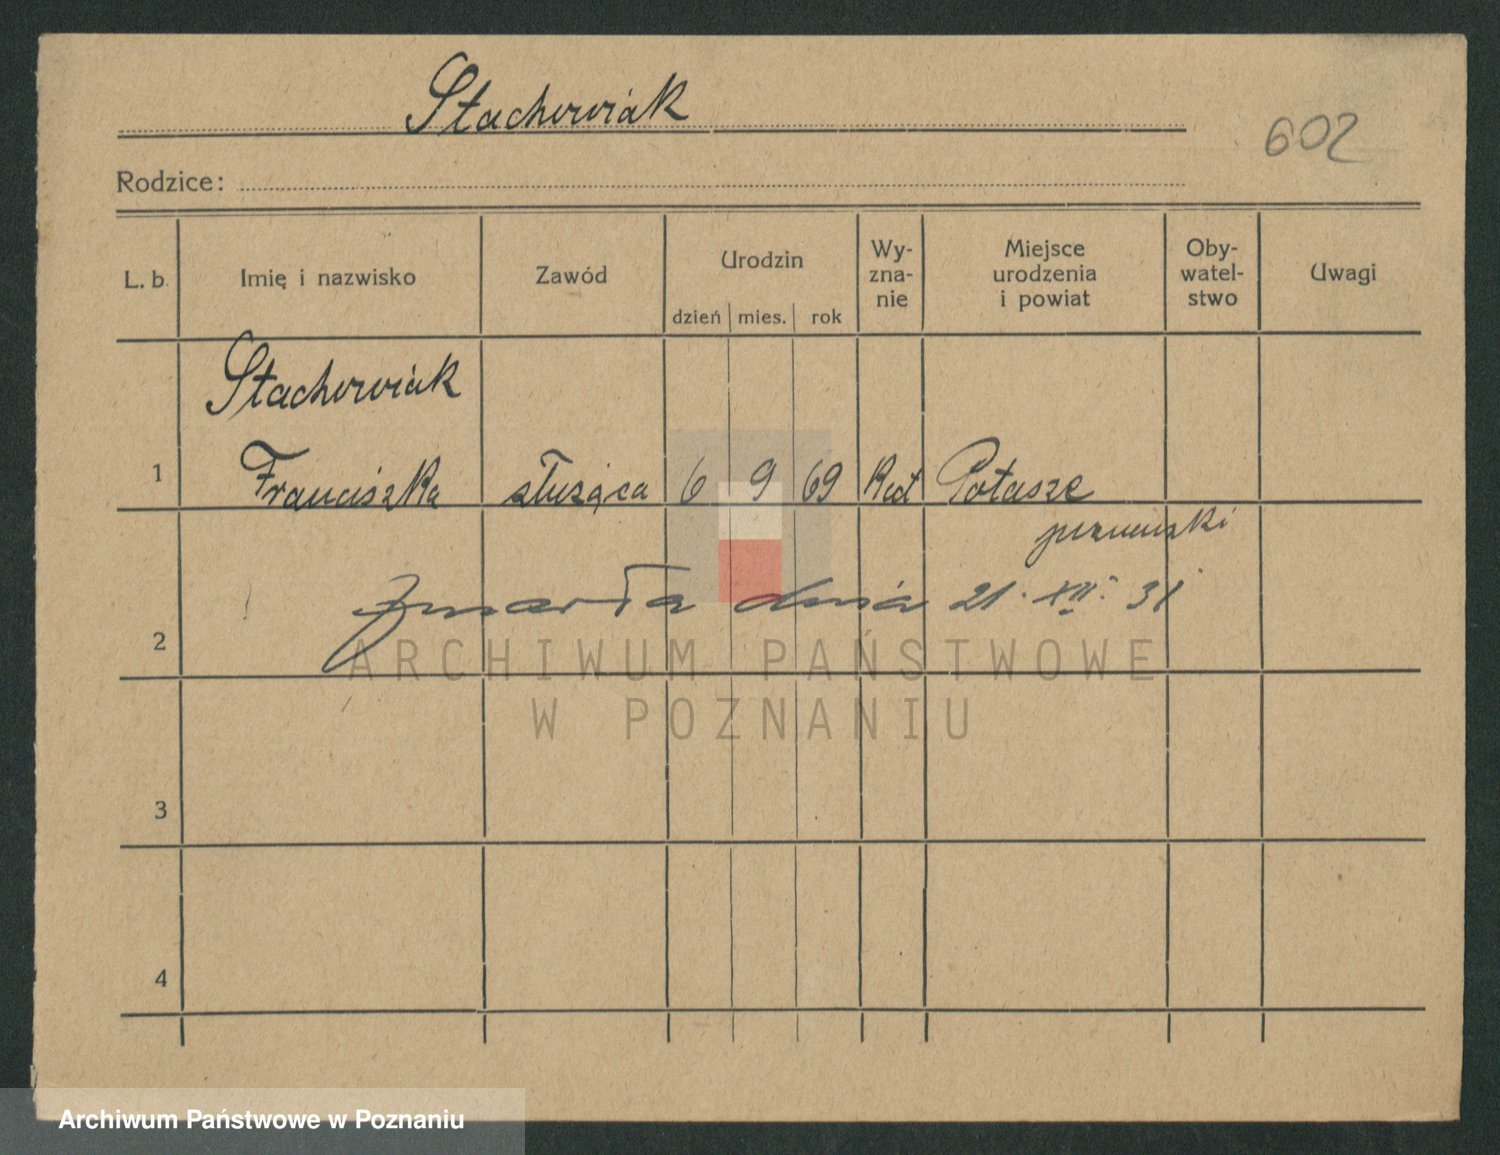 Stachowiak
602
Rodzice:
L. b. Imię i nazwisko Zawód Urodzin dzień mies. rok Wy-zna-nie Miejsce urodzenia i powiat Oby-watel-stwo Uwagi
Stachowiak
1 Franciszka służąca 6 9 69 Kat Potasze
poznański
zmarła dnia 21. XII. 31
2
ARCHIWUM PAŃSTWOWE
W POZNANIU
3
4
Archiwum Państwowe w Poznaniu